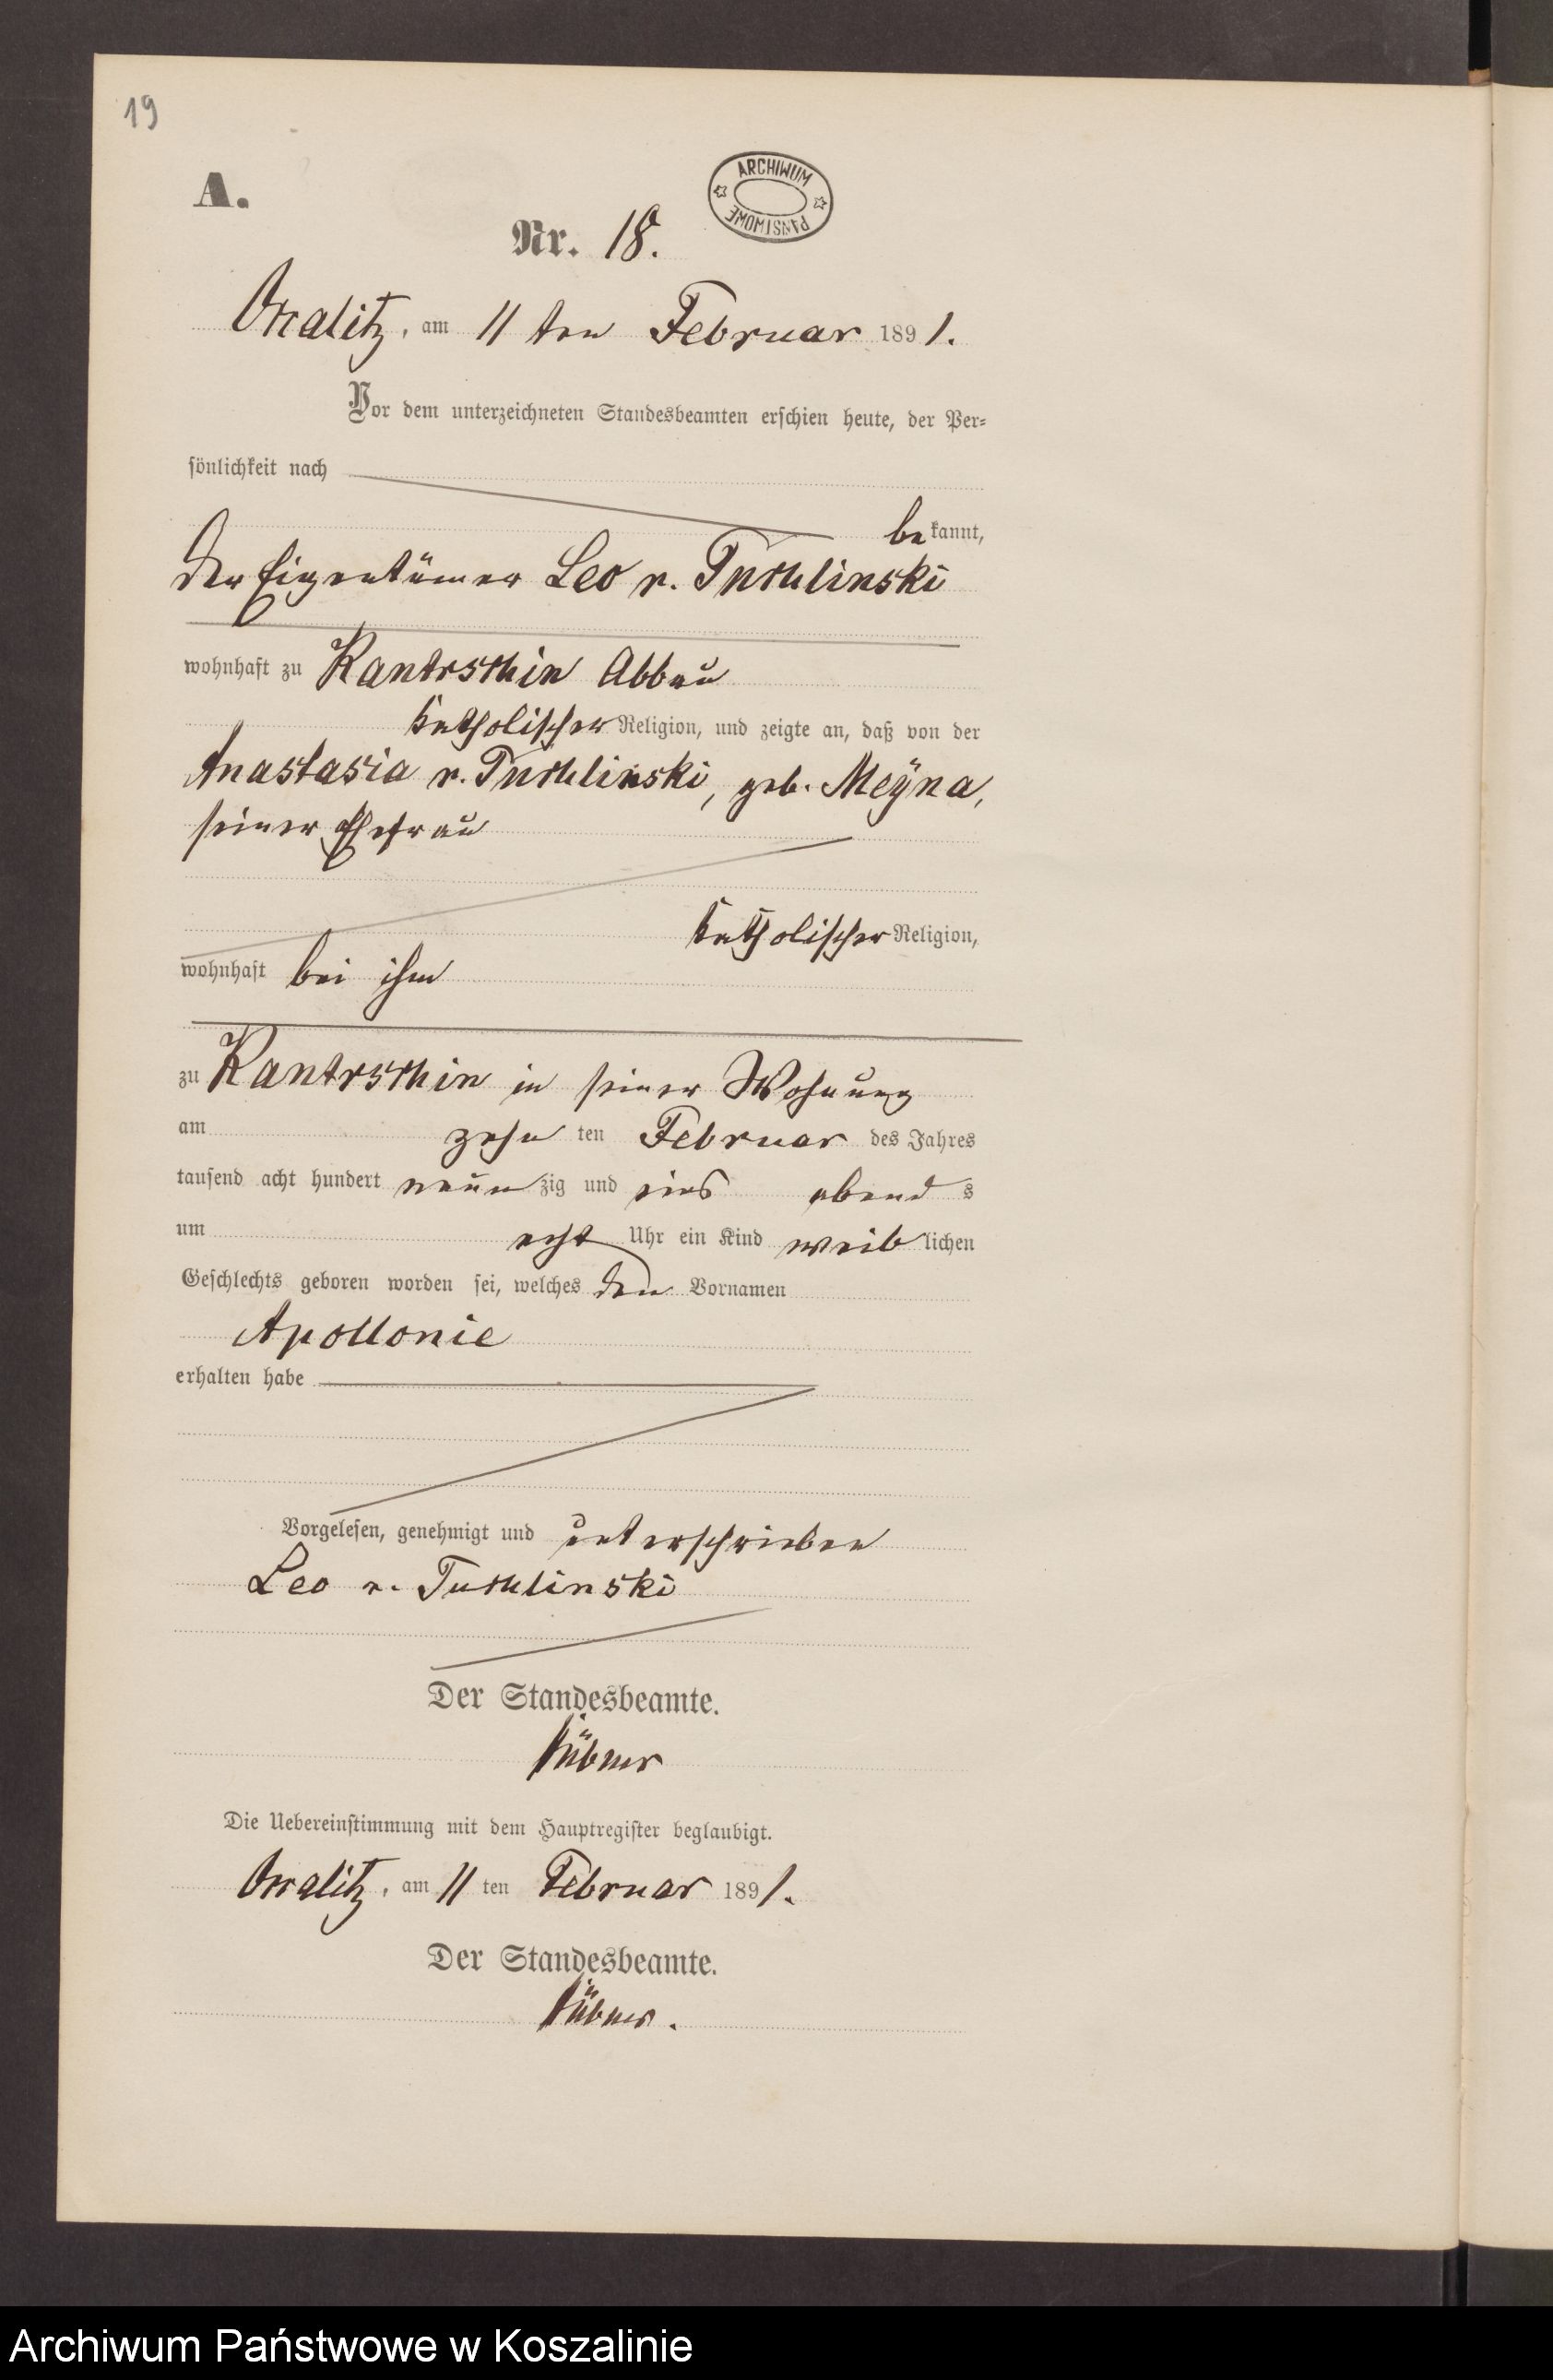 19
A.
ARCHIWUM
PAŃSTWOWE
Nr. 18.
Ossalitz, am 11 ten Februar 1891.
Vor dem unterzeichneten Standesbeamten erschien heute, der Per-
sönlichkeit nach
bekannt,
der Eigentümer Leo v. Tuchlinski
wohnhaft zu Kantrschin Abbau
katholischer Religion, und zeigte an, daß von der
Anastasia v. Tuchlinski, geb. Meÿna,
seiner Ehefrau
katholischer Religion,
wohnhaft bei ihm
zu Kantrschin in seiner Wohnung
am zehn ten Februar des Jahres
tausend acht hundert neunzig und eins abends
um acht Uhr ein Kind weiblichen
Geschlechts geboren worden sei, welches den Vornamen
Apollonie
erhalten habe
Vorgelesen, genehmigt und unterschrieben
Leo v. Tuchlinski
Der Standesbeamte.
Hübner
Die Uebereinstimmung mit dem Hauptregister beglaubigt.
Ossalitz, am 11 ten Februar 1891.
Der Standesbeamte.
Hübner.
Archiwum Państwowe w Koszalinie